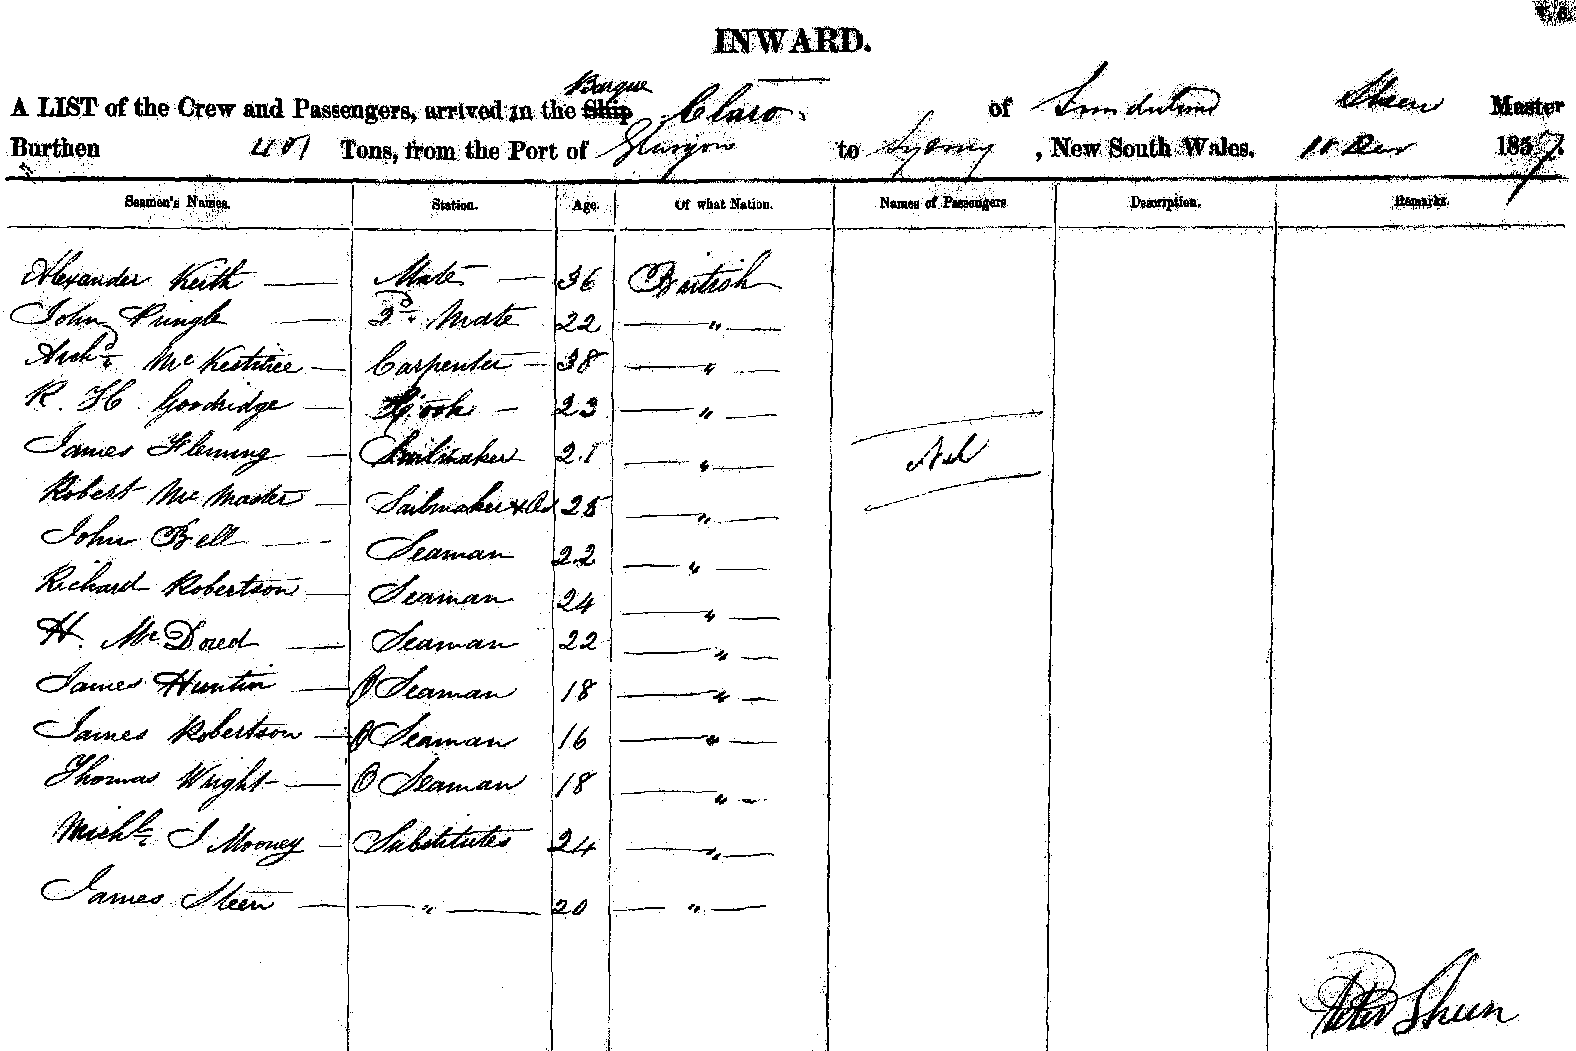 INWARD.
Barque
A LIST of the Crew and Passengers, arrived in the Ship Claro. of Sunderland Sheen Master
Burthen 401 Tons, from the Port of Glasgow to Sydney, New South Wales. 11 Dec 1857.
Seamen's Names. Station. Age. Of what Nation. Names of Passengers Description. Remarks.
Alexander Keith — Mate — 36 British
John Pringle — 2d Mate 22 — " —
Archd Mc — Carpenter — 38 — " —
R. H Goodridge — Cook — 23 — " —
James Fleming — Sailmaker 21 — " — Nil
Robert McMaster — Sailmaker & 25 — " —
John Bell — Seaman 22 — " —
Richard Robertson — Seaman 24 — " —
H. Mc — Seaman 22 — " —
James — O Seaman 18 — " —
James Robertson — O Seaman 16 — " —
Thomas Wright — O Seaman 18 — " —
Michl J Mooney — Substitutes 24 — " —
James Steen — " — 20 — " —
Peter Sheen